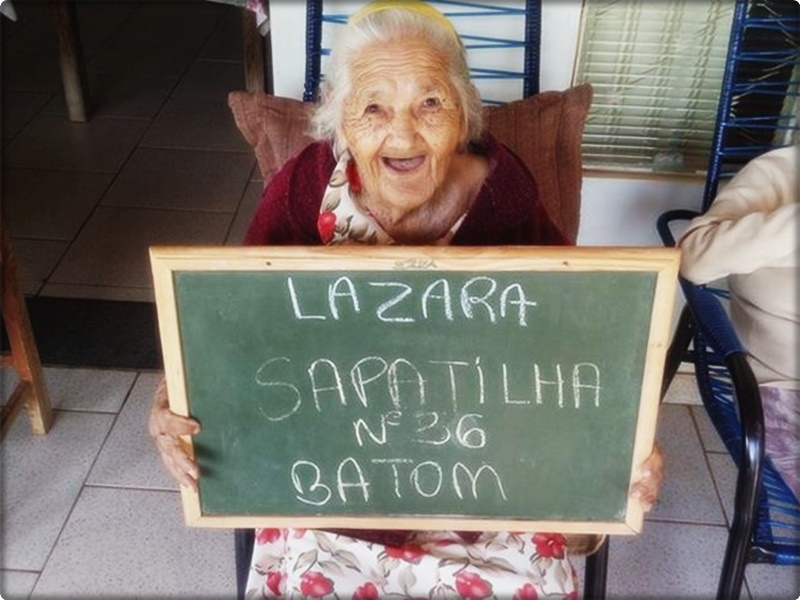 LAZARA
SAPATILHA
Nº 36
BATOM